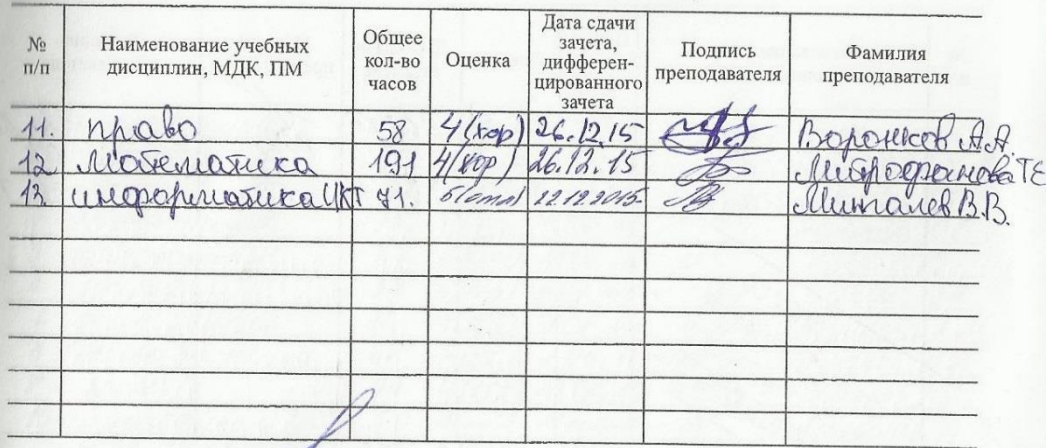 № п/п Наименование учебных дисциплин, МДК, ПМ Общее кол-во часов Оценка Дата сдачи зачета, дифферен- цированного зачета Подпись преподавателя Фамилия преподавателя
11. право 58 4(хор) 26.12.15 Воронков А.А.
12 математика 191 4(хор) 26.12.15 Митрофанова Т Е
13. информатика ИКТ 71. 5(отл) 22.12.2015 Мингалев В.В.